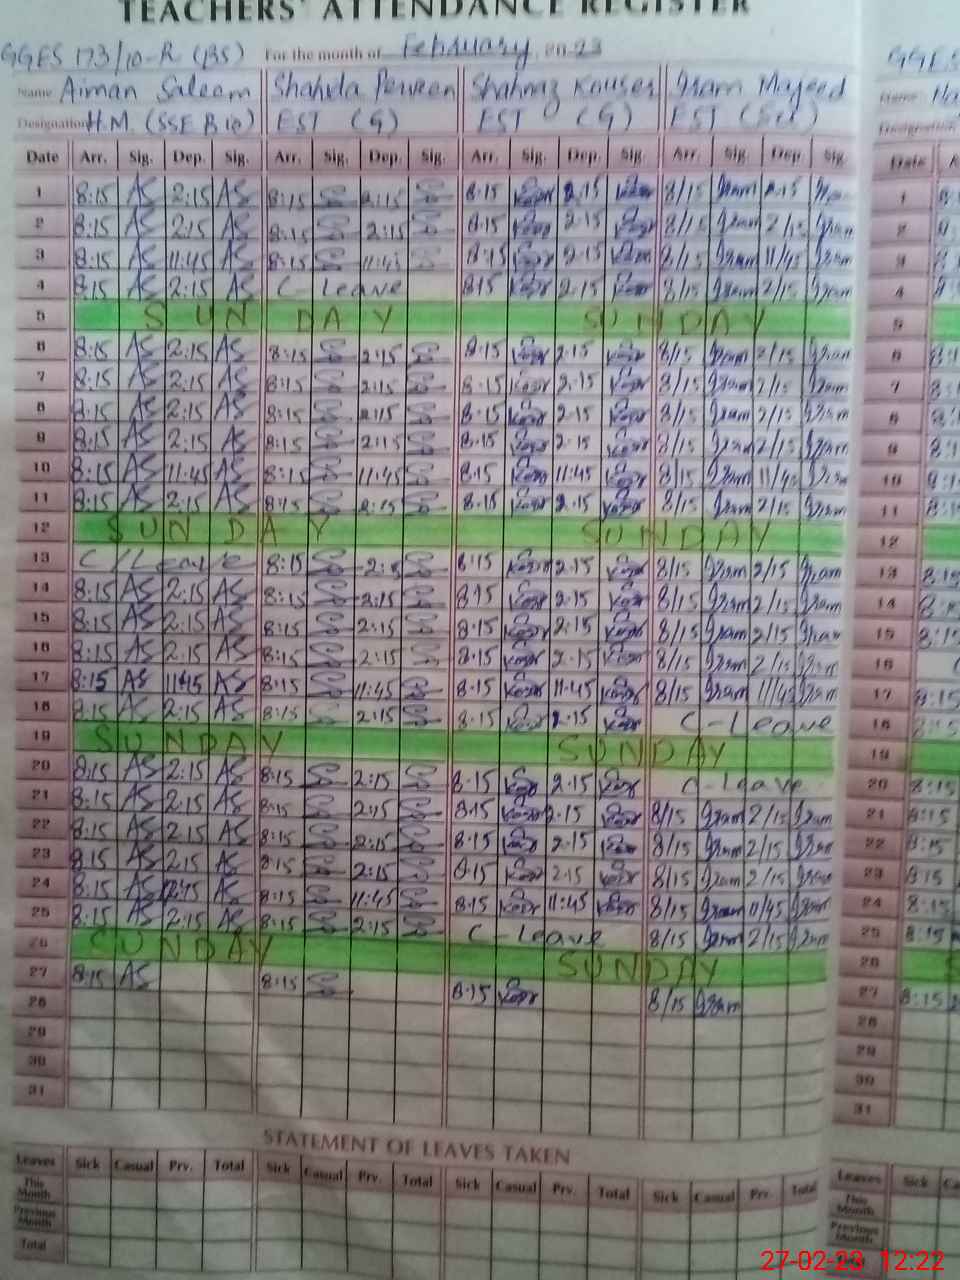 TEACHERS' ATTENDANCE REGISTER
GGES 173/10-R (BS) For the month of February 2023 GGES
Name Aiman Saleem Shahda Perveen Shahnaz Kouser Iram Majeed Name
Designation H.M. (SSE B16) EST (G) EST (G) EST Designation
Date Arr. Sig. Dep. Sig. Arr. Sig. Dep. Sig. Arr. Sig. Dep. Sig. Arr. Sig. Dep. Sig. Date
1 8:15 AS 2:15 AS 8:15 2:15 8:15 2:15 8/15 Iram 2:15 Iram 1
2 8:15 AS 2:15 AS 8:15 2:15 8:15 2:15 8/15 Iram 2/15 Iram 2
3 8:15 AS 11:45 AS 8:15 11:45 8:15 2:15 8/15 Iram 11/45 Iram 3
4 8:15 AS 2:15 AS C-Leave 8:15 2:15 8/15 Iram 2/15 Iram 4
5 SUNDAY SUNDAY 5
6 8:15 AS 2:15 AS 8:15 2:15 8:15 2:15 8/15 Iram 2/15 Iram 6
7 8:15 AS 2:15 AS 8:15 2:15 8:15 2:15 8/15 Iram 2/15 Iram 7
8 8:15 AS 2:15 AS 8:15 2:15 8:15 2:15 8/15 Iram 2/15 Iram 8
9 8:15 AS 2:15 AS 8:15 2:15 8:15 2:15 8/15 Iram 2/15 Iram 9
10 8:15 AS 11:45 AS 8:15 11:45 8:15 11:45 8/15 Iram 11/45 Iram 10
11 8:15 AS 2:15 AS 8:15 2:15 8:15 2:15 8/15 Iram 2/15 Iram 11
12 SUNDAY SUNDAY 12
13 C/Leave 8:15 2:15 8:15 2:15 8/15 Iram 2/15 Iram 13 8:15
14 8:15 AS 2:15 AS 8:15 2:15 8:15 2:15 8/15 Iram 2/15 Iram 14
15 8:15 AS 2:15 AS 8:15 2:15 8:15 2:15 8/15 Iram 2/15 Iram 15
16 8:15 AS 2:15 AS 8:15 2:15 8:15 2:15 8/15 Iram 2/15 Iram 16
17 8:15 AS 11:45 AS 8:15 11:45 8:15 11:45 8/15 Iram 11/45 Iram 17 8:15
18 8:15 AS 2:15 AS 8:15 2:15 8:15 2:15 C-Leave 18 8:15
19 SUNDAY SUNDAY 19
20 8:15 AS 2:15 AS 8:15 2:15 8:15 2:15 C-Leave 20 8:15
21 8:15 AS 2:15 AS 8:15 2:15 8:15 2:15 8/15 Iram 2/15 Iram 21 8:15
22 8:15 AS 2:15 AS 8:15 2:15 8:15 2:15 8/15 Iram 2/15 Iram 22 8:15
23 8:15 AS 2:15 AS 8:15 2:15 8:15 2:15 8/15 Iram 2/15 Iram 23 8:15
24 8:15 AS AS 8:15 11:45 8:15 11:45 8/15 Iram 11/45 Iram 24 8:15
25 8:15 AS 2:15 AS 8:15 2:15 C-Leave 8/15 Iram 2/15 Iram 25 8:15
26 SUNDAY SUNDAY 26
27 8:15 AS 8:15 8:15 8/15 Iram 27 8:15
28 28
29 29
30 30
31 31
STATEMENT OF LEAVES TAKEN
Leaves Sick Casual Prv. Total Sick Casual Prv. Total Sick Casual Prv. Total Sick Casual Prv. Total Leaves Sick
This Month This Month
Previous Month Previous Month
Total
27-02-23 12:22